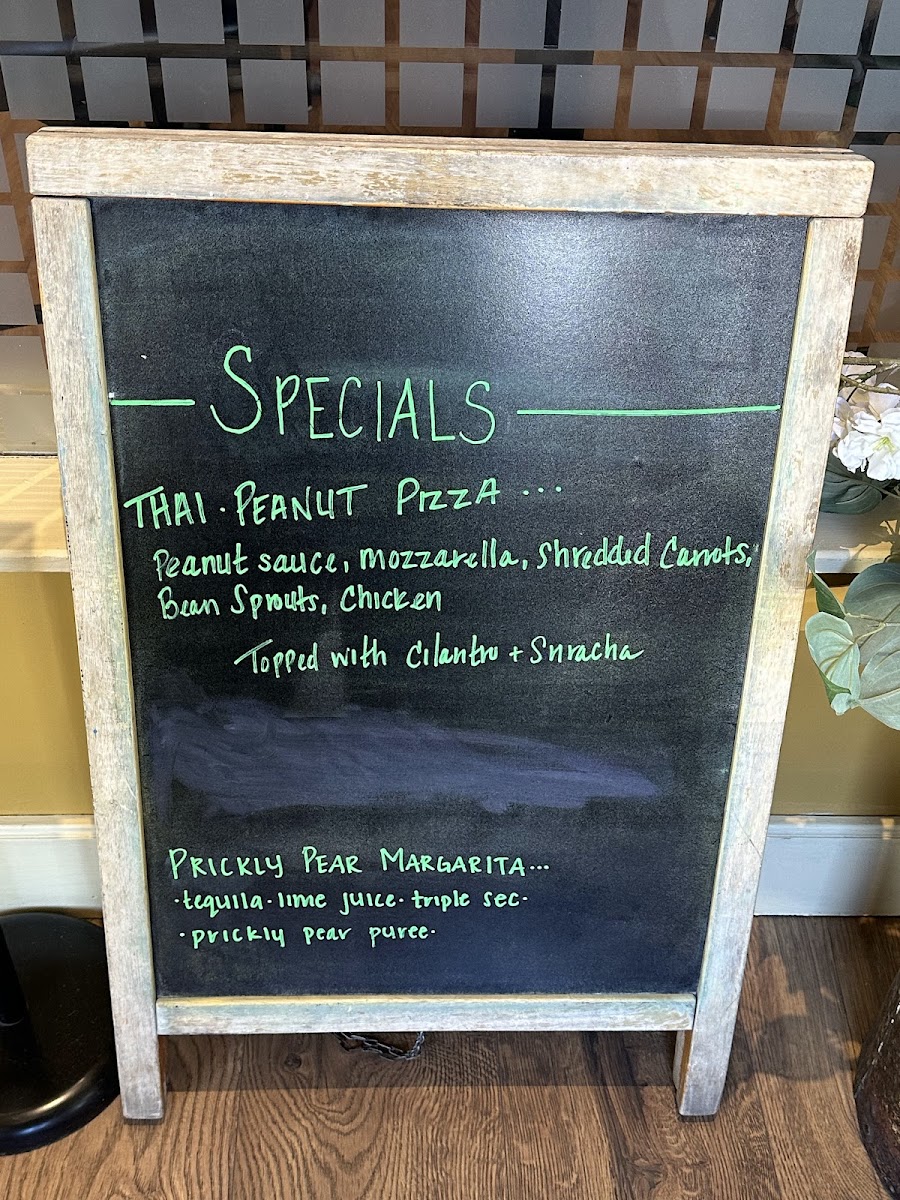 SPECIALS
THAI · PEANUT PIZZA ...
Peanut sauce, mozzarella, shredded Carrots,
Bean Sprouts, Chicken
Topped with Cilantro + Sriracha
PRICKLY PEAR MARGARITA...
·tequila·lime juice·triple sec·
·prickly pear puree·